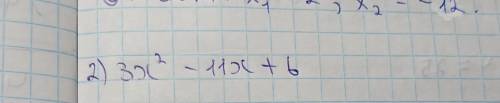 x₁ 2, x₂ = -12.
2) 3x² - 11x + 6